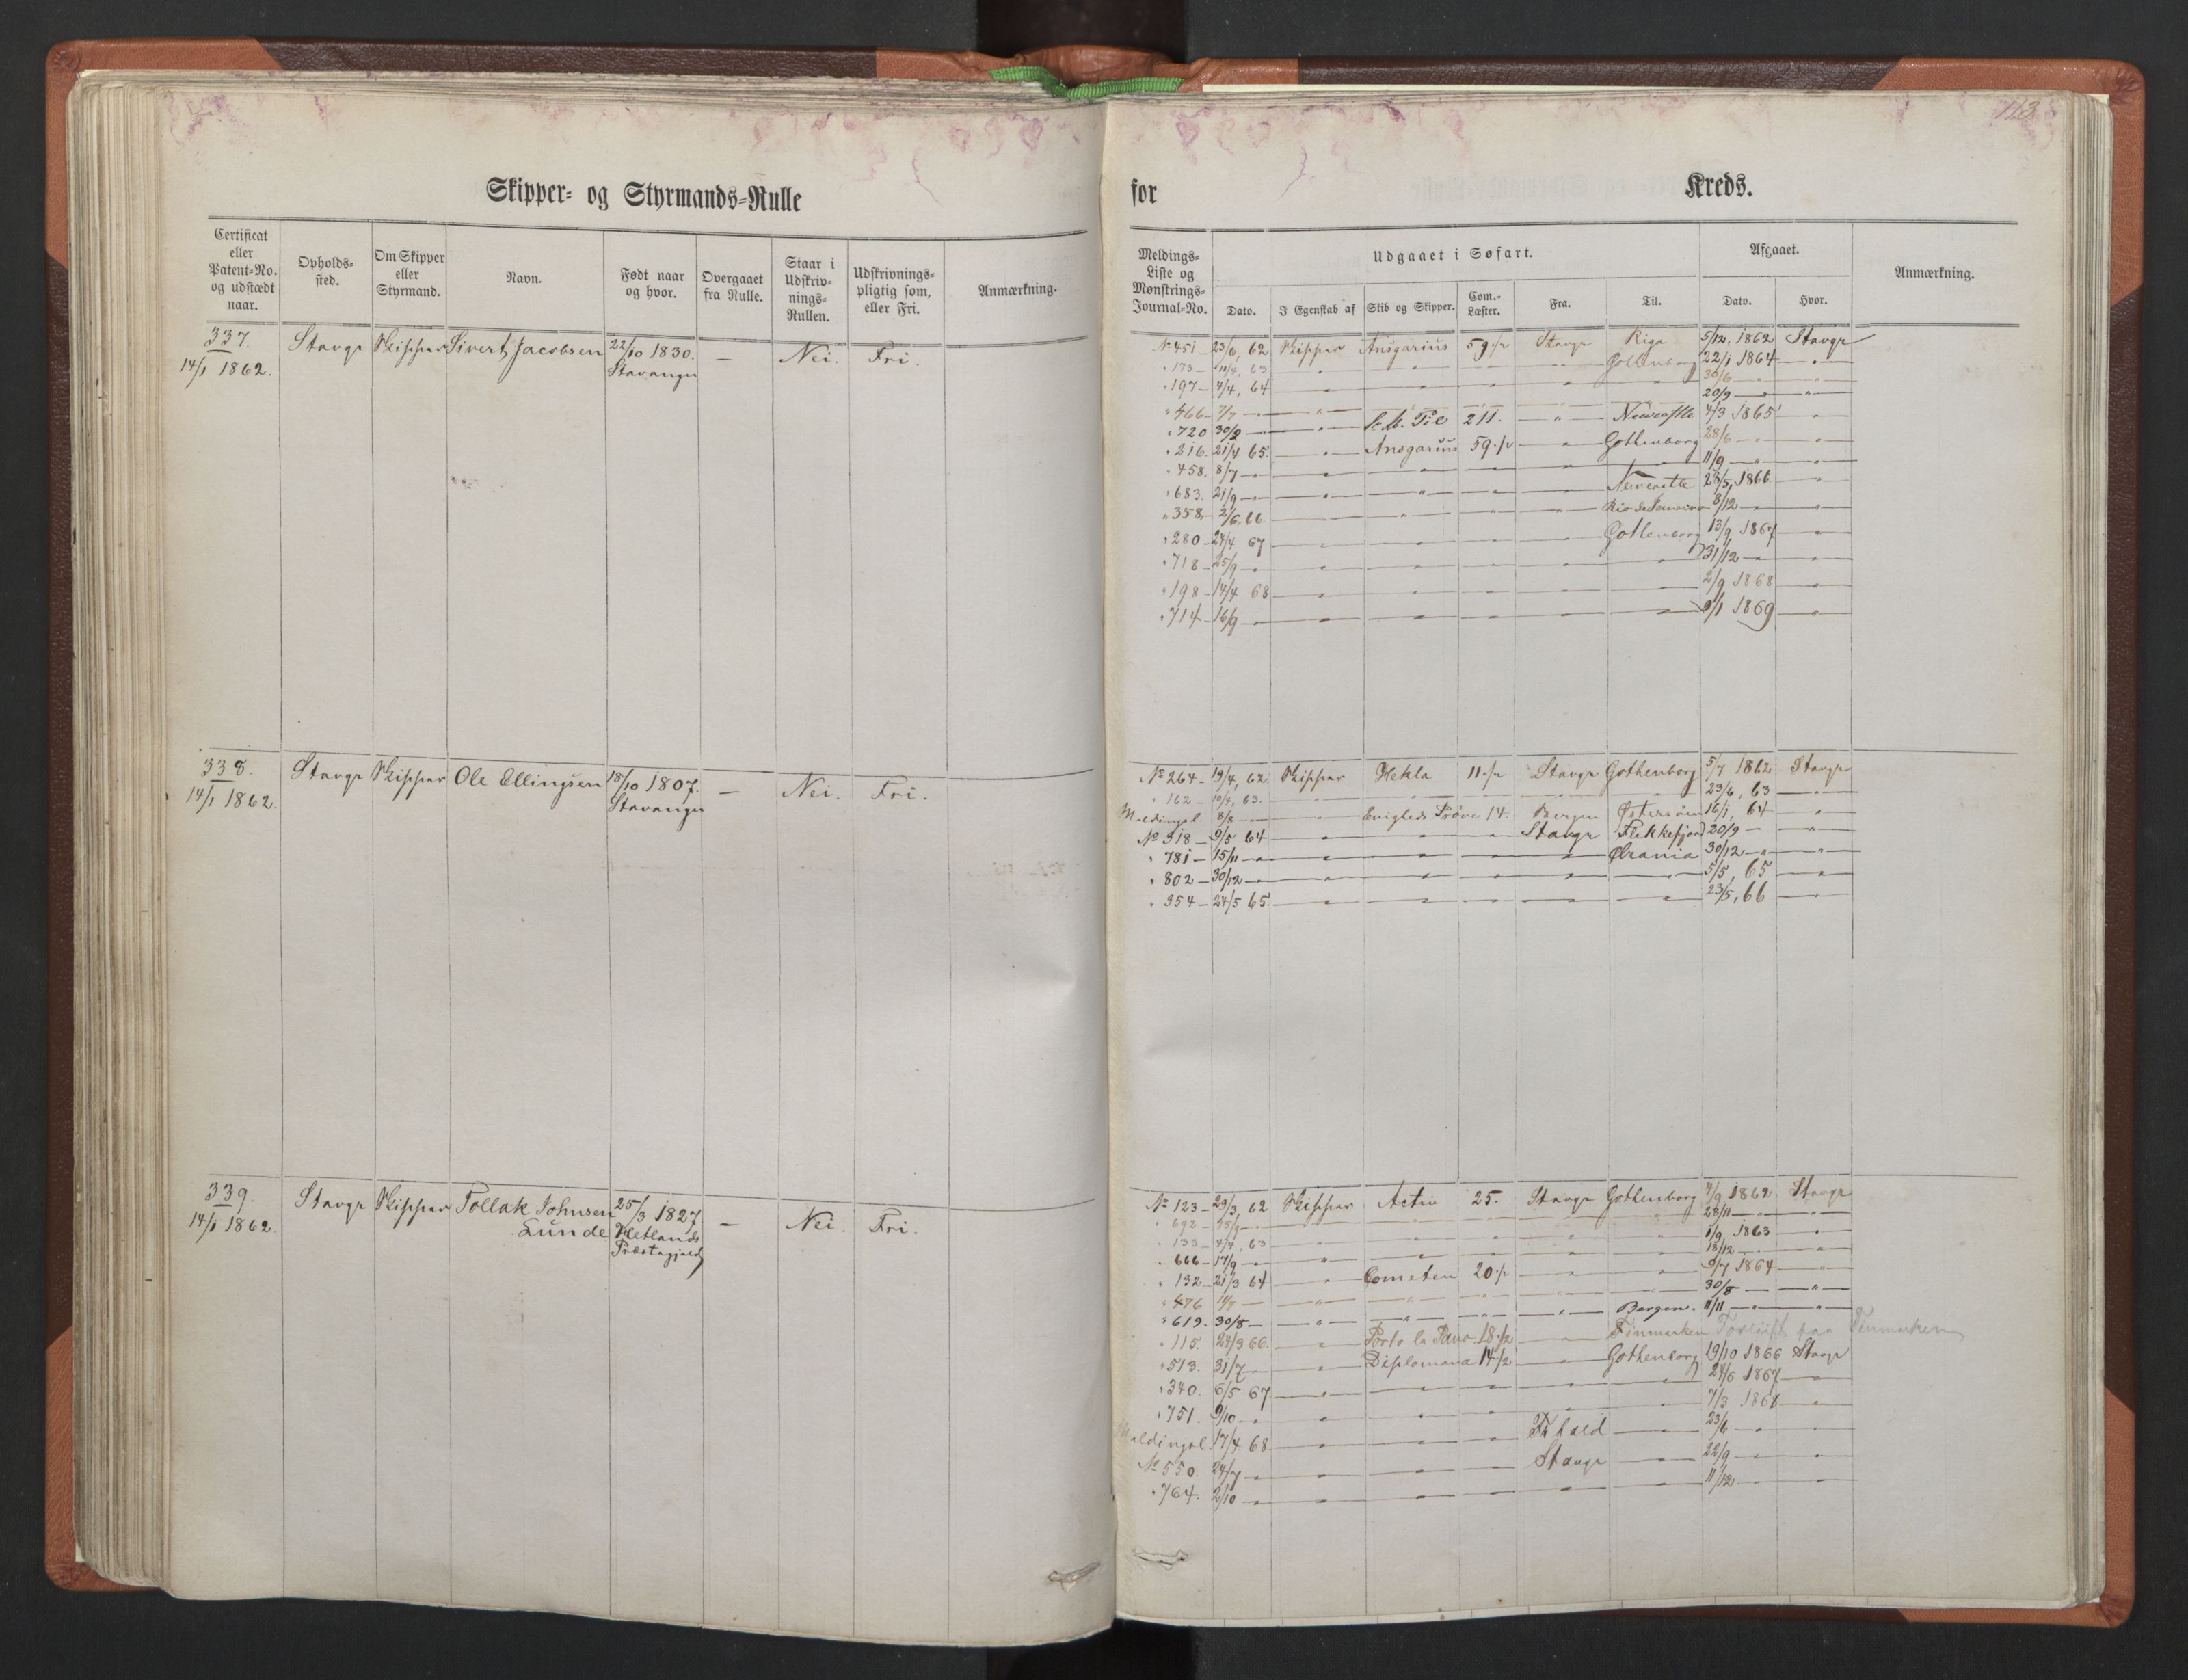 Skipper- og Styrmands-Rulle
Certificat eller Patent-No. og udstædt naar.
Opholds-sted.
Om Skipper eller Styrmand.
Navn.
Født naar og hvor.
Overgaaet fra Rulle.
Staar i Udskriv-nings-Rullen.
Udskrivnings-pligtig som, eller Fri.
Anmærkning.
337. 14/1 1862.
Stavgr Skipper Sivert Jacobsen 22/10 1830. Stavanger — Nei. Fri.
338. 14/1 1862.
Stavgr Skipper Ole Ellingsen 18/10 1807. Stavanger — Nei. Fri.
339. 14/1 1862.
Stavgr Skipper Tollak Johnsen Lunde 25/3 1827 Hetlands Præstegjeld — Nei. Fri.
for Kreds.
113
Meldings-Liste og Mønstrings-Journal-No.
Udgaaet i Søfart.
Dato.
I Egenskab af
Skib og Skipper.
Com.-Læster.
Fra.
Til.
Afgaaet.
Dato.
Hvor.
Anmærkning.
No 451 — 23/6, 62 Skipper Ansgarius 59 1/2 Stavgr Riga 5/12, 1862 Stavgr
" 173 — 11/4, 63 " " " " Gothenborg 22/1 1864 "
" 197 — 4/4, 64 " " " " " 30/6 — "
" 466 — 7/7 — " 20/9 — "
" 720 30/9 — " 211. " Newcastle 4/3 1865 "
" 216. 21/4 65. " Ansgarius 59 1/2 " Gothenborg 28/6 — "
" 458. 8/7 — " 11/9 — "
" 683. 21/9 — " " Newcastle 23/5, 1866 "
" 358 — 2/6, 66 " " Rio de Janeiro 8/12 — "
" 280 — 24/4 67 " " Gothenborg 13/9 1867 "
" 718 — 25/9 — " " " 31/12 — "
" 198 — 14/4 68 " " " 2/9 1868 "
" 714 — 16/9 — " " " 9/1 1869 "
No 264 — 19/4, 62 Skipper Hekla 11 1/2 Stavgr Gothenborg 5/7 1862 Stavgr
" 162 — 10/4, 63. " " " " 23/6, 63 "
Meldingsl. 8/8 — " Enigheds Prøve 14. Bergen Østersøen 16/1, 64 "
No 318 — 9/5 64 " " " Stavgr Flekkefjord 20/9 — "
" 781 — 15/11 — " " " " Chrania 30/12 — "
" 802 — 30/12 — " " " " " 5/5, 65 "
" 354 — 24/5 65. " " " " " 23/5, 66 "
No 123 — 29/3, 62 Skipper Activ 25. Stavgr Gothenborg 4/9 1862 Stavgr
" 692 — " " " " 28/11 — "
" 133 — 4/4, 63 " " " " 1/9, 1863 "
" 666 — 17/9 — " " " " 18/12 — "
" 132 — 21/3 64 " Cometen 20 1/2 " " 9/7 1864 "
" 476 " " " " 30/8 — "
" 619. 30/8 — " " " " Bergen. 11/11 — "
" 115. 24/3 66. " 18 1/2 " Finmarken paa Finmarken
" 513. 31/7 — " Diplomand 14 1/2 " Gothenborg 19/10 1866 Stavgr
" 340. 6/5 67 " " " " 24/6 1867 "
" 751. 9/10 — " " " " " 7/3 1868 "
Meldingsl. 17/4 68 " " " Frhald " 23/6 — "
No 550. 24/7 — " " " Stavgr " 22/9 — "
" 764. 2/10 — " " " " " 11/12 — "